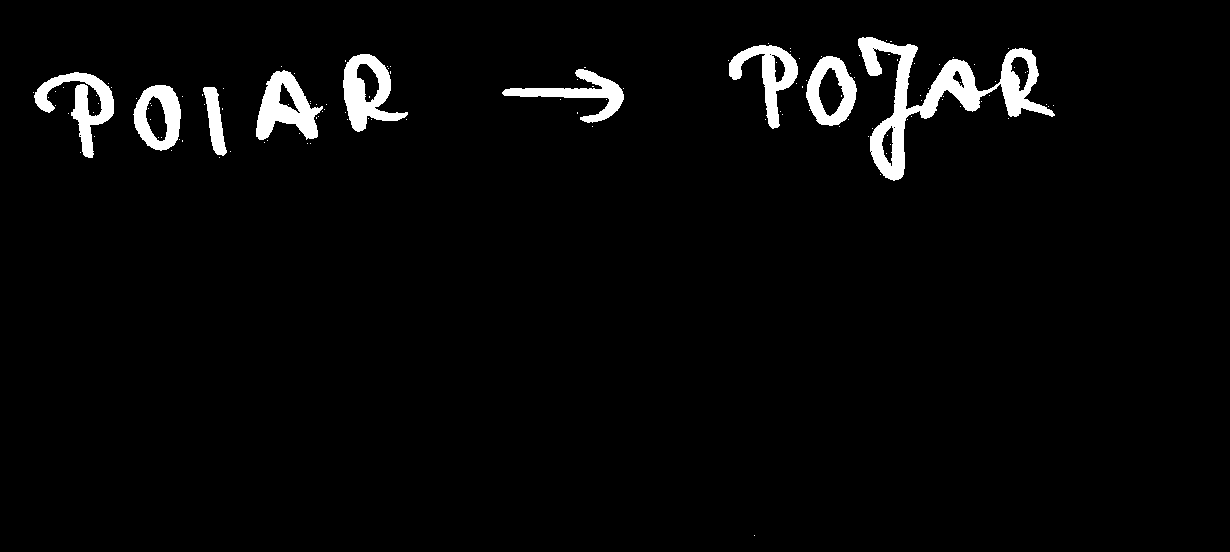 POIAR → POJAR